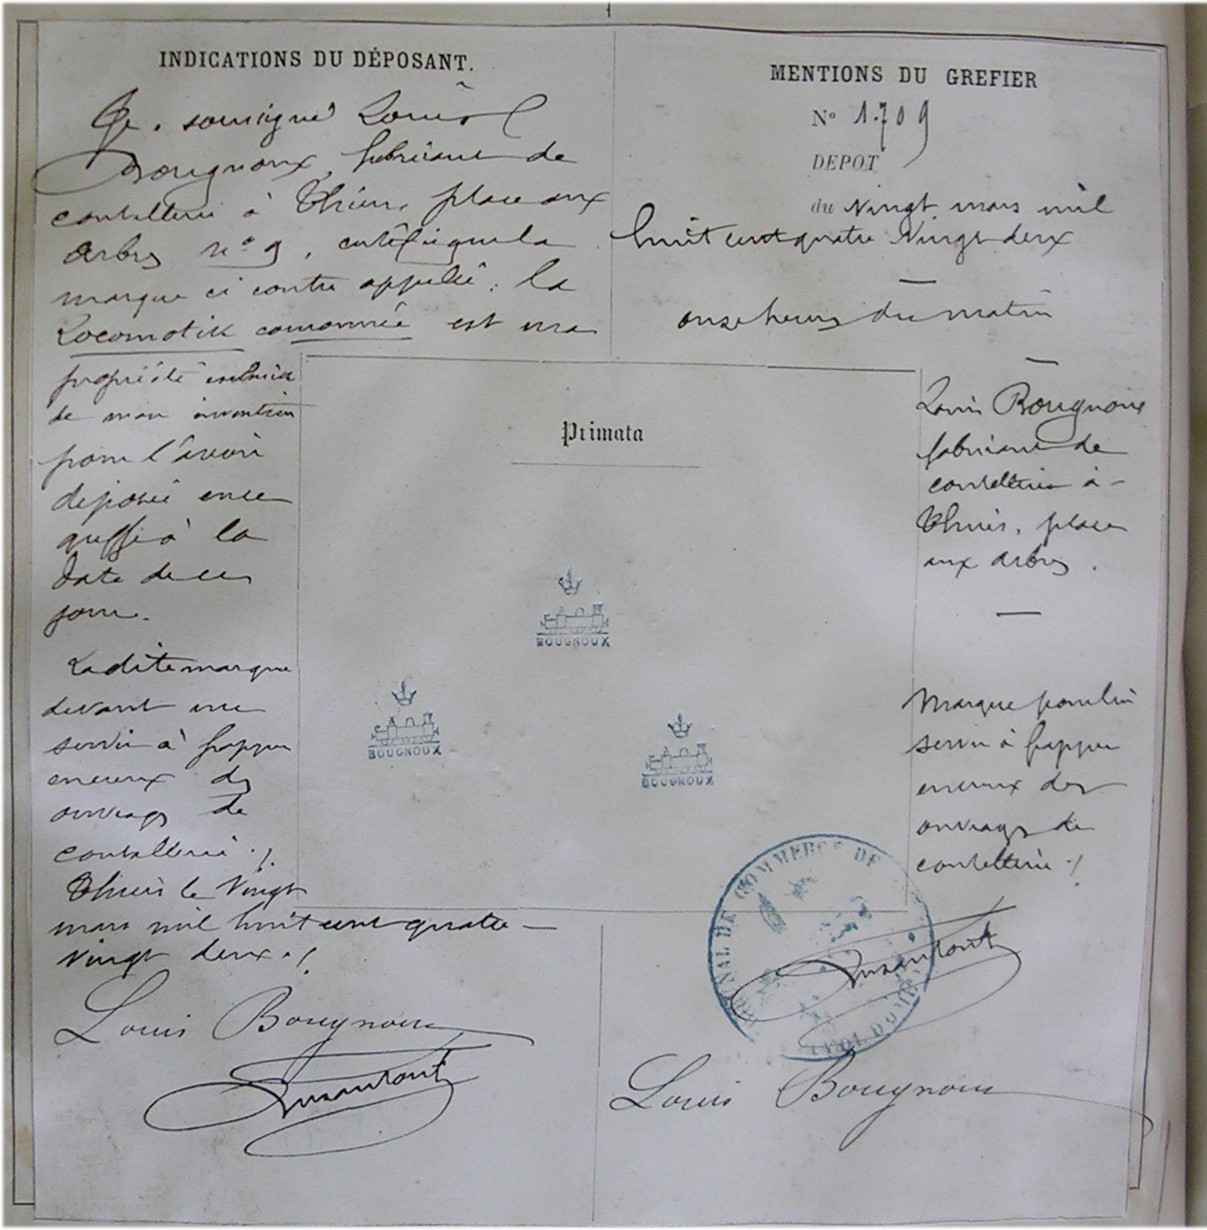 INDICATIONS DU DÉPOSANT.
Je soussigné Louis
Bougnoux, fabricant de
coutellerie à Thiers, place aux
Arbres n° 9, certifie que la
marque ci contre appelée: la
Locomotive couronnée est ma
propriété exclusive
de mon invention
pour l'avoir
déposée en ce
greffe à la
date de ce
jour.
Ladite marque
devant me
servir à frapper
en creux des
ouvrages de
coutellerie ./.
Thiers le vingt
mars mil huit cent quatre
vingt deux ./
Louis Bougnoux
MENTIONS DU GREFIER
N° 1.709
DÉPOT
du Vingt mars mil
huit cent quatre Vingt deux
—
onze heures du matin
—
Louis Bougnoux
fabricant de
coutellerie à
Thiers, place
aux arbres.
—
Marque pour lui
servir à frapper
en creux des
ouvrages de
coutellerie ./
Primata
BOUGNOUX
BOUGNOUX
BOUGNOUX
TRIBUNAL DE COMMERCE DE
Louis Bougnoux